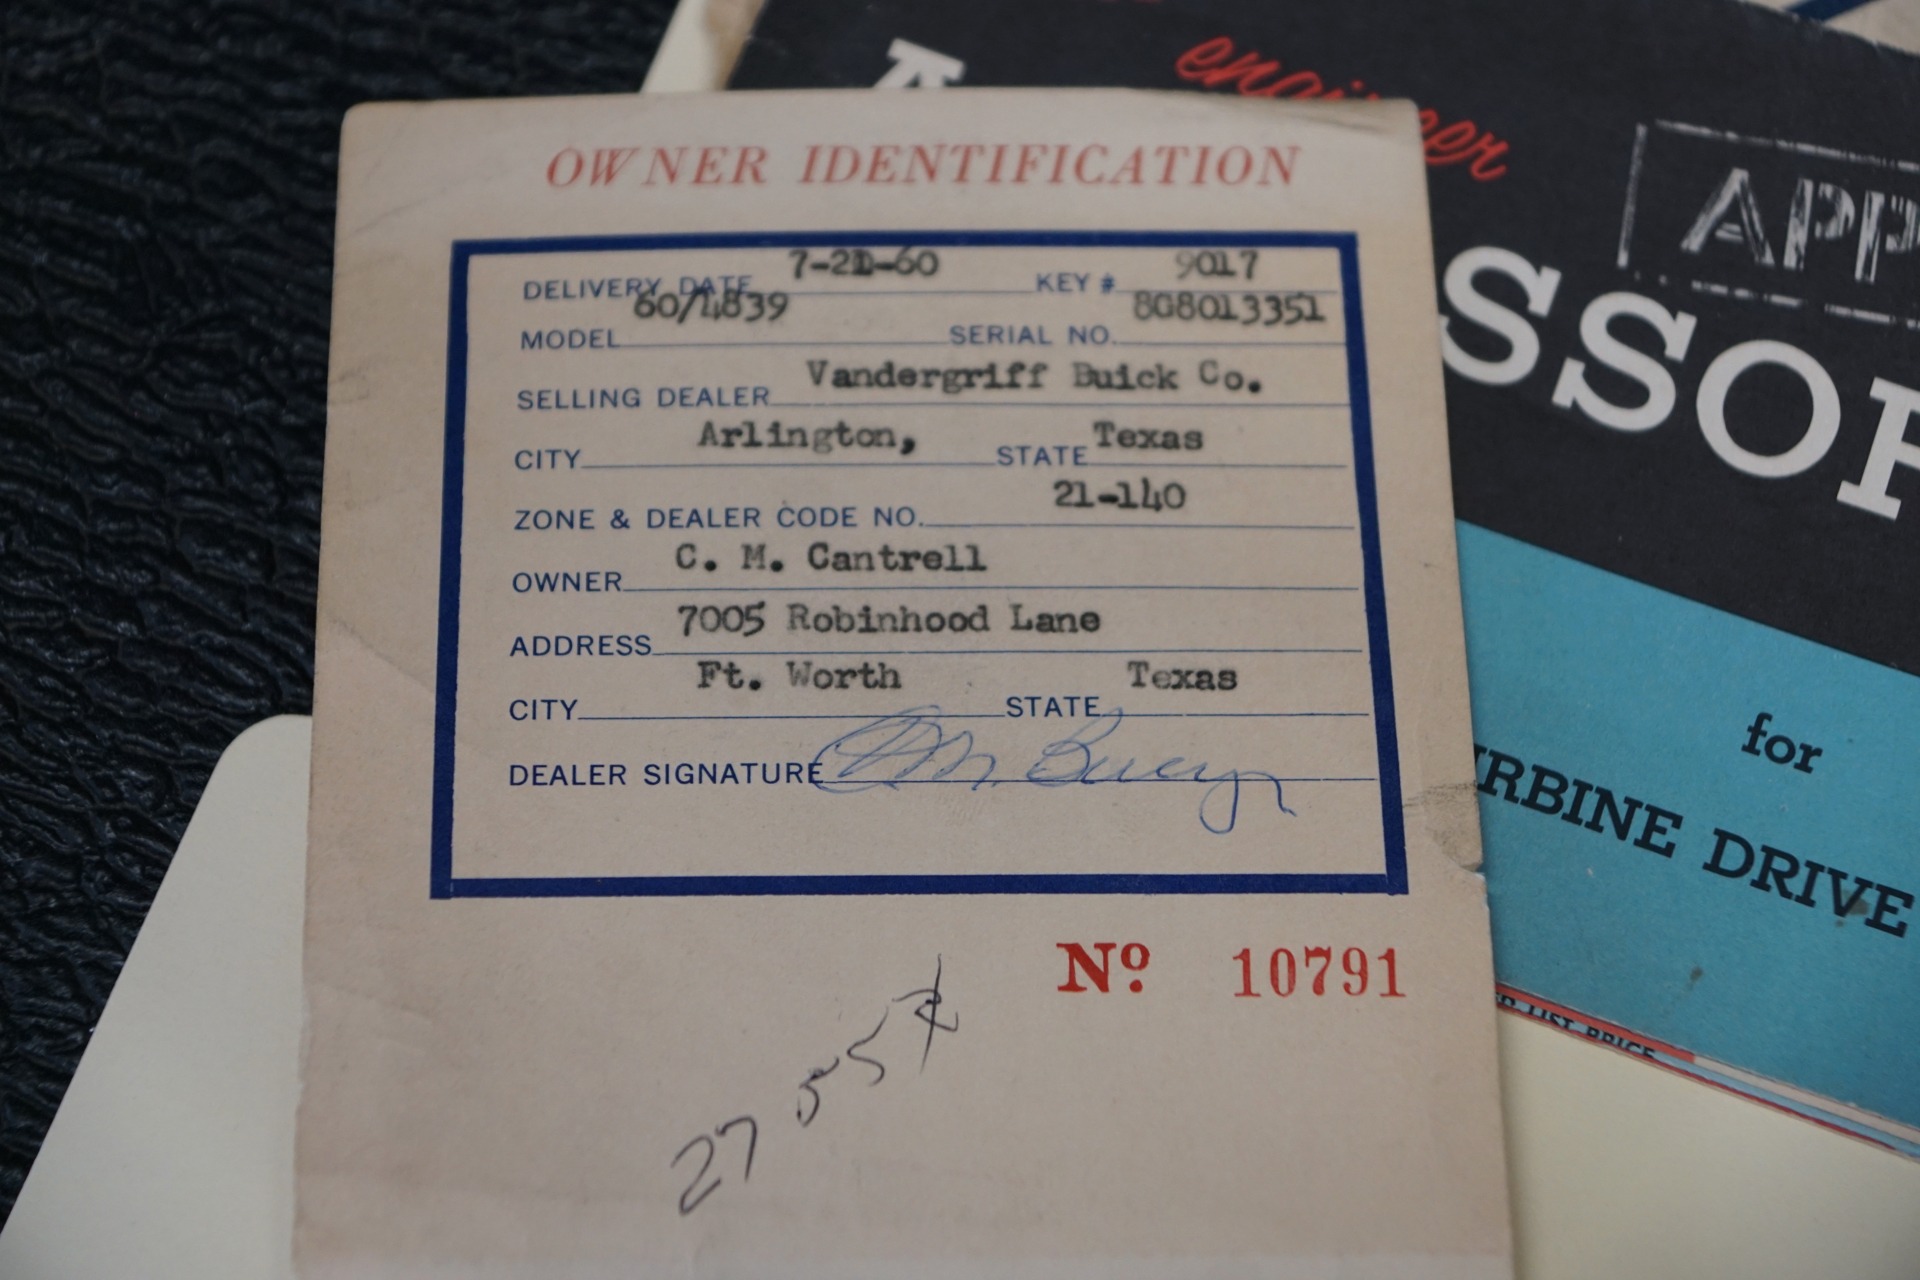 OWNER IDENTIFICATION
DELIVERY DATE 7-21-60 KEY # 9017
MODEL 60/4839 SERIAL NO. 8G8013351
SELLING DEALER Vandergriff Buick Co.
CITY Arlington, STATE Texas
ZONE & DEALER CODE NO. 21-140
OWNER C. M. Cantrell
ADDRESS 7005 Robinhood Lane
CITY Ft. Worth STATE Texas
DEALER SIGNATURE
Nº. 10791
27 55
engineer
APP
SSOR
for
URBINE DRIVE
LIST PRICE